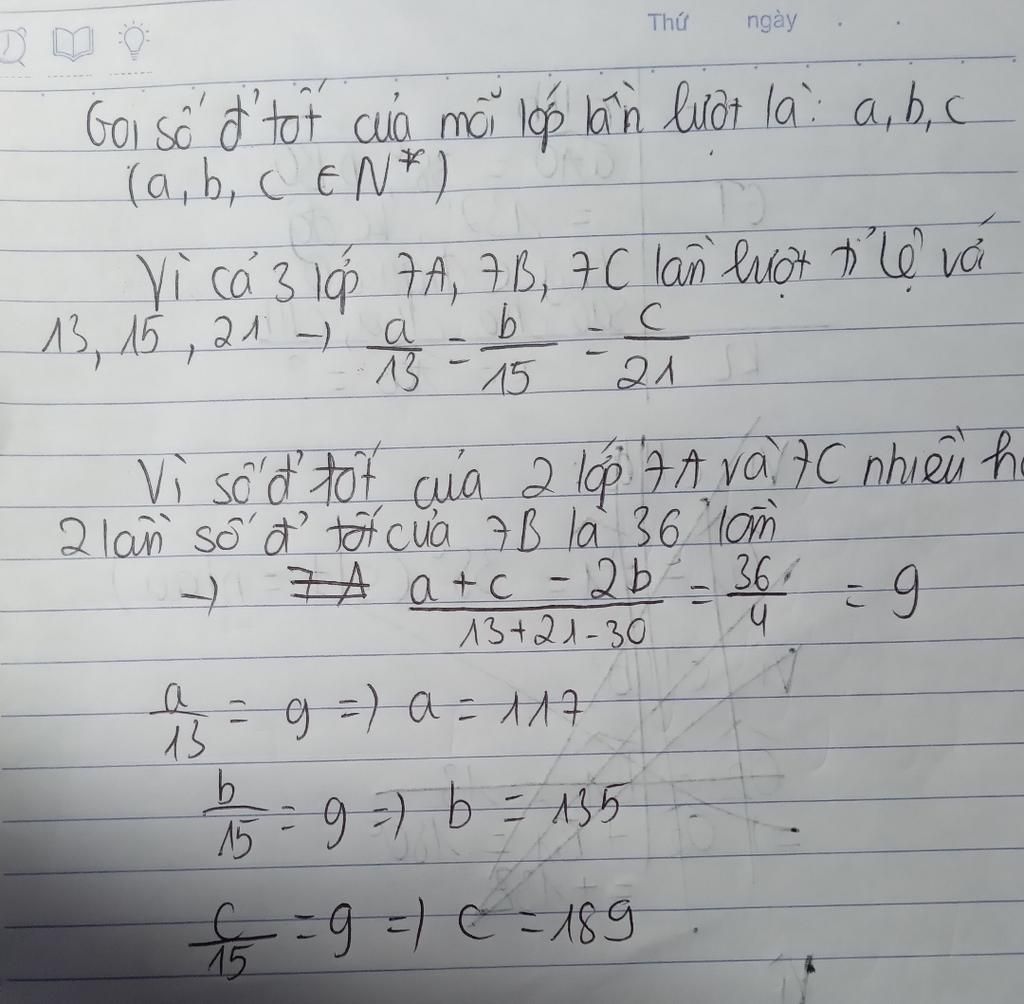 Thứ ngày . .
Gọi số đ' tốt của mỗi lớp lần lượt là: a, b, c
(a, b, c ∈ N*)
Vì cả 3 lớp 7A, 7B, 7C lần lượt tỉ lệ với
13, 15, 21 → a/13 = b/15 = c/21
Vì số đ' tốt của 2 lớp 7A và 7C nhiều h
2 lần số đ' tốt của 7B là 36 lần
→ 7A (a + c - 2b)/(13+21-30) = 36/4 = 9
a/13 = 9 => a = 117
b/15 = 9 => b = 135
c/15 = 9 => c = 189